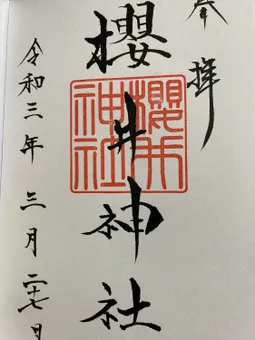 奉拝
櫻井神社
櫻井神社
令和三年三月二十七日